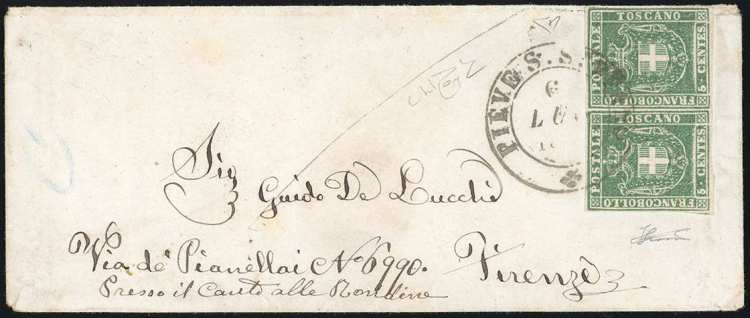 FRANCOBOLLO POSTALE TOSCANO 5 CENTES
FRANCOBOLLO POSTALE TOSCANO 5 CENTES
PIEVE S. S.
6
Sig
Guido De Lucchi
Via de' Pianellai No 6990.
Firenze
Presso il Canto alle Rondine